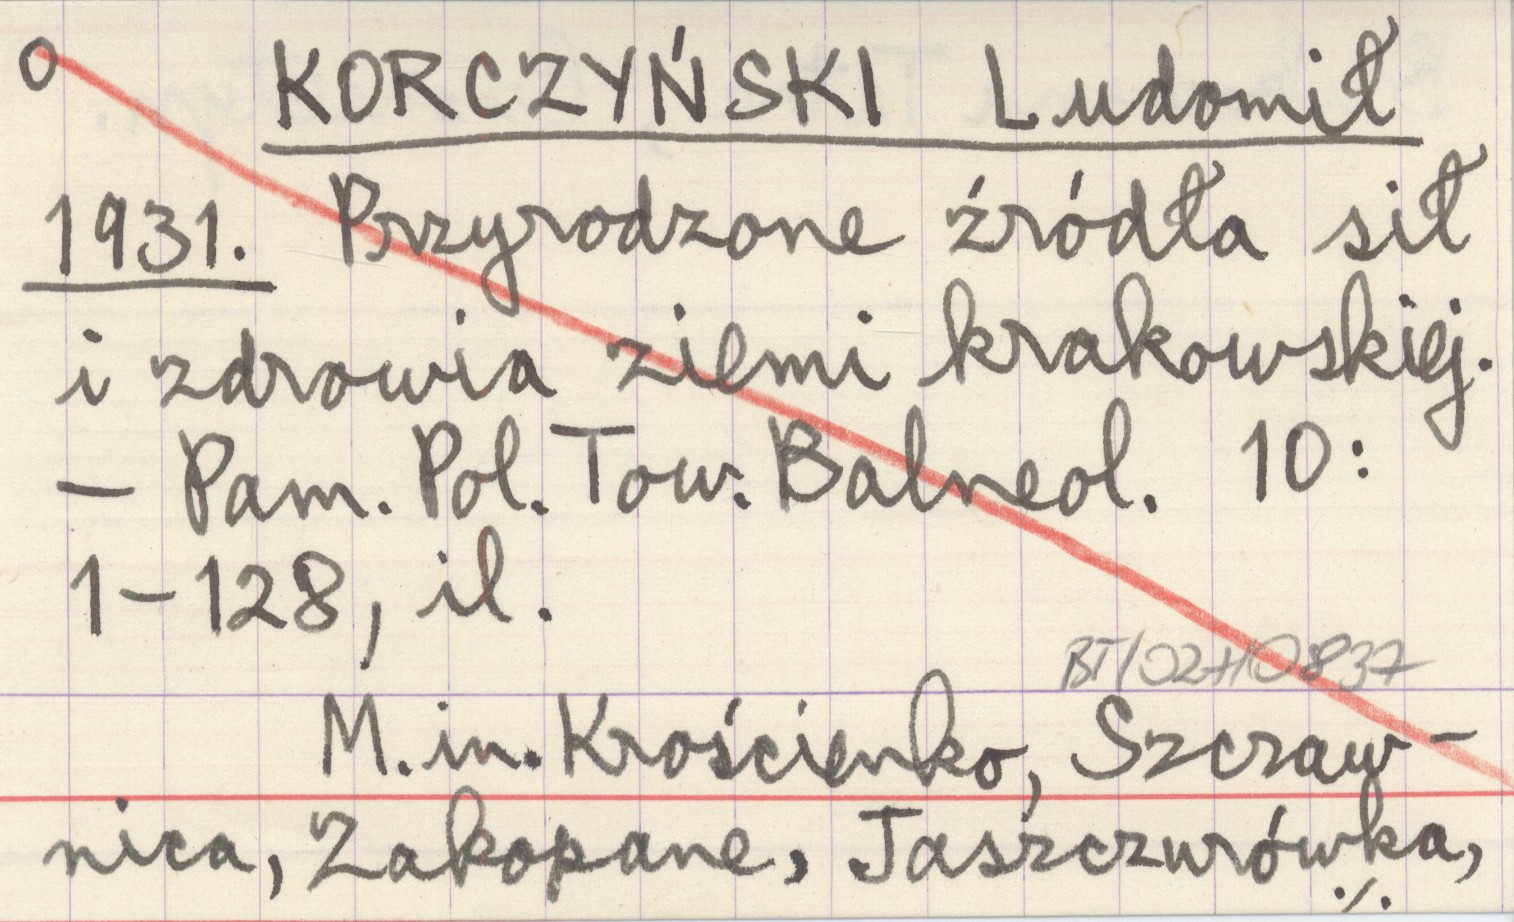 O KORCZYŃSKI Ludomił
1931. Przyrodzone źródła sił
i zdrowia ziemi krakowskiej.
— Pam. Pol. Tow. Balneol. 10:
1–128, il.
BT/02+/0837
M. in. Krościenko, Szczaw-
nica, Zakopane, Jaszczurówka,
./.